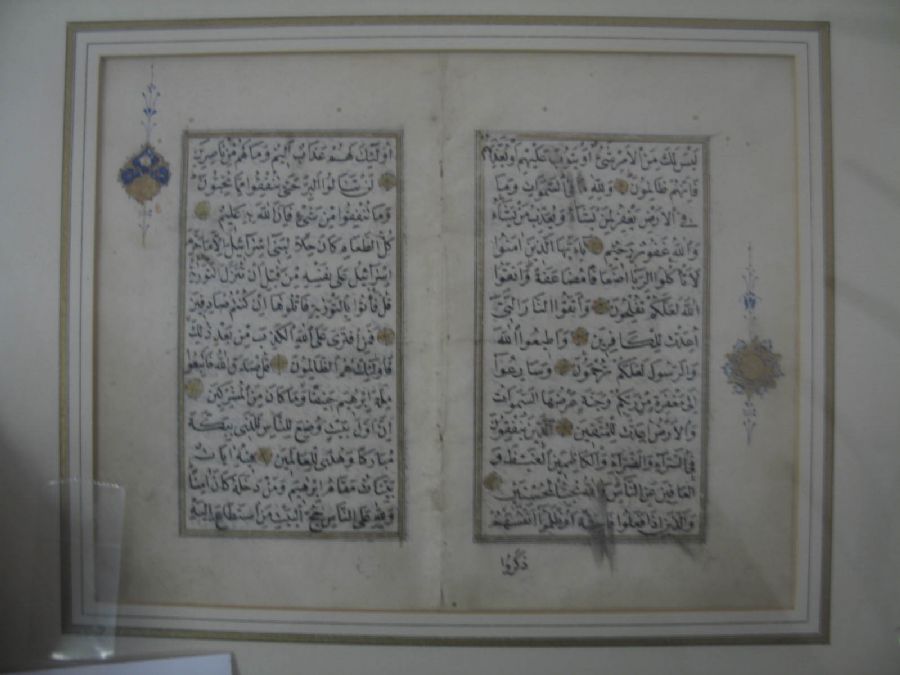 ليس لك من الامر شئ او يتوب عليهم او يعذبهم
فانهم ظالمون ولله ما في السموات وما
في الارض يغفر لمن يشاء ويعذب من يشاء
والله غفور رحيم ياءيها الذين امنوا
لا تاكلوا الربا اضعافا مضاعفة واتقوا
الله لعلكم تفلحون واتقوا النار التي
اعدت للكافرين واطيعوا الله
والرسول لعلكم ترحمون وسارعوا
الى مغفرة من ربكم وجنة عرضها السموات
والارض اعدت للمتقين الذين ينفقون
في السراء والضراء والكاظمين الغيظ و
العافين عن الناس والله يحب المحسنين
والذين اذا فعلوا فاحشة او ظلموا انفسهم
ذكروا
اولئك لهم عذاب اليم وما لهم من ناصرين
لن تنالوا البر حتى تنفقوا مما تحبون
وما تنفقوا من شيء فان الله به عليم
كل الطعام كان حلا لبني اسرائيل الا ما حرم
اسرائيل على نفسه من قبل ان تنزل التورية
قل فاتوا بالتورية فاتلوها ان كنتم صادقين
فمن افترى على الله الكذب من بعد ذلك
فاولئك هم الظالمون قل صدق الله فاتبعوا
ملة ابرهيم حنيفا وما كان من المشركين
ان اول بيت وضع للناس للذي ببكة
مباركا وهدى للعالمين فيه ايات
بينات مقام ابرهيم ومن دخله كان امنا
ولله على الناس حج البيت من استطاع اليه